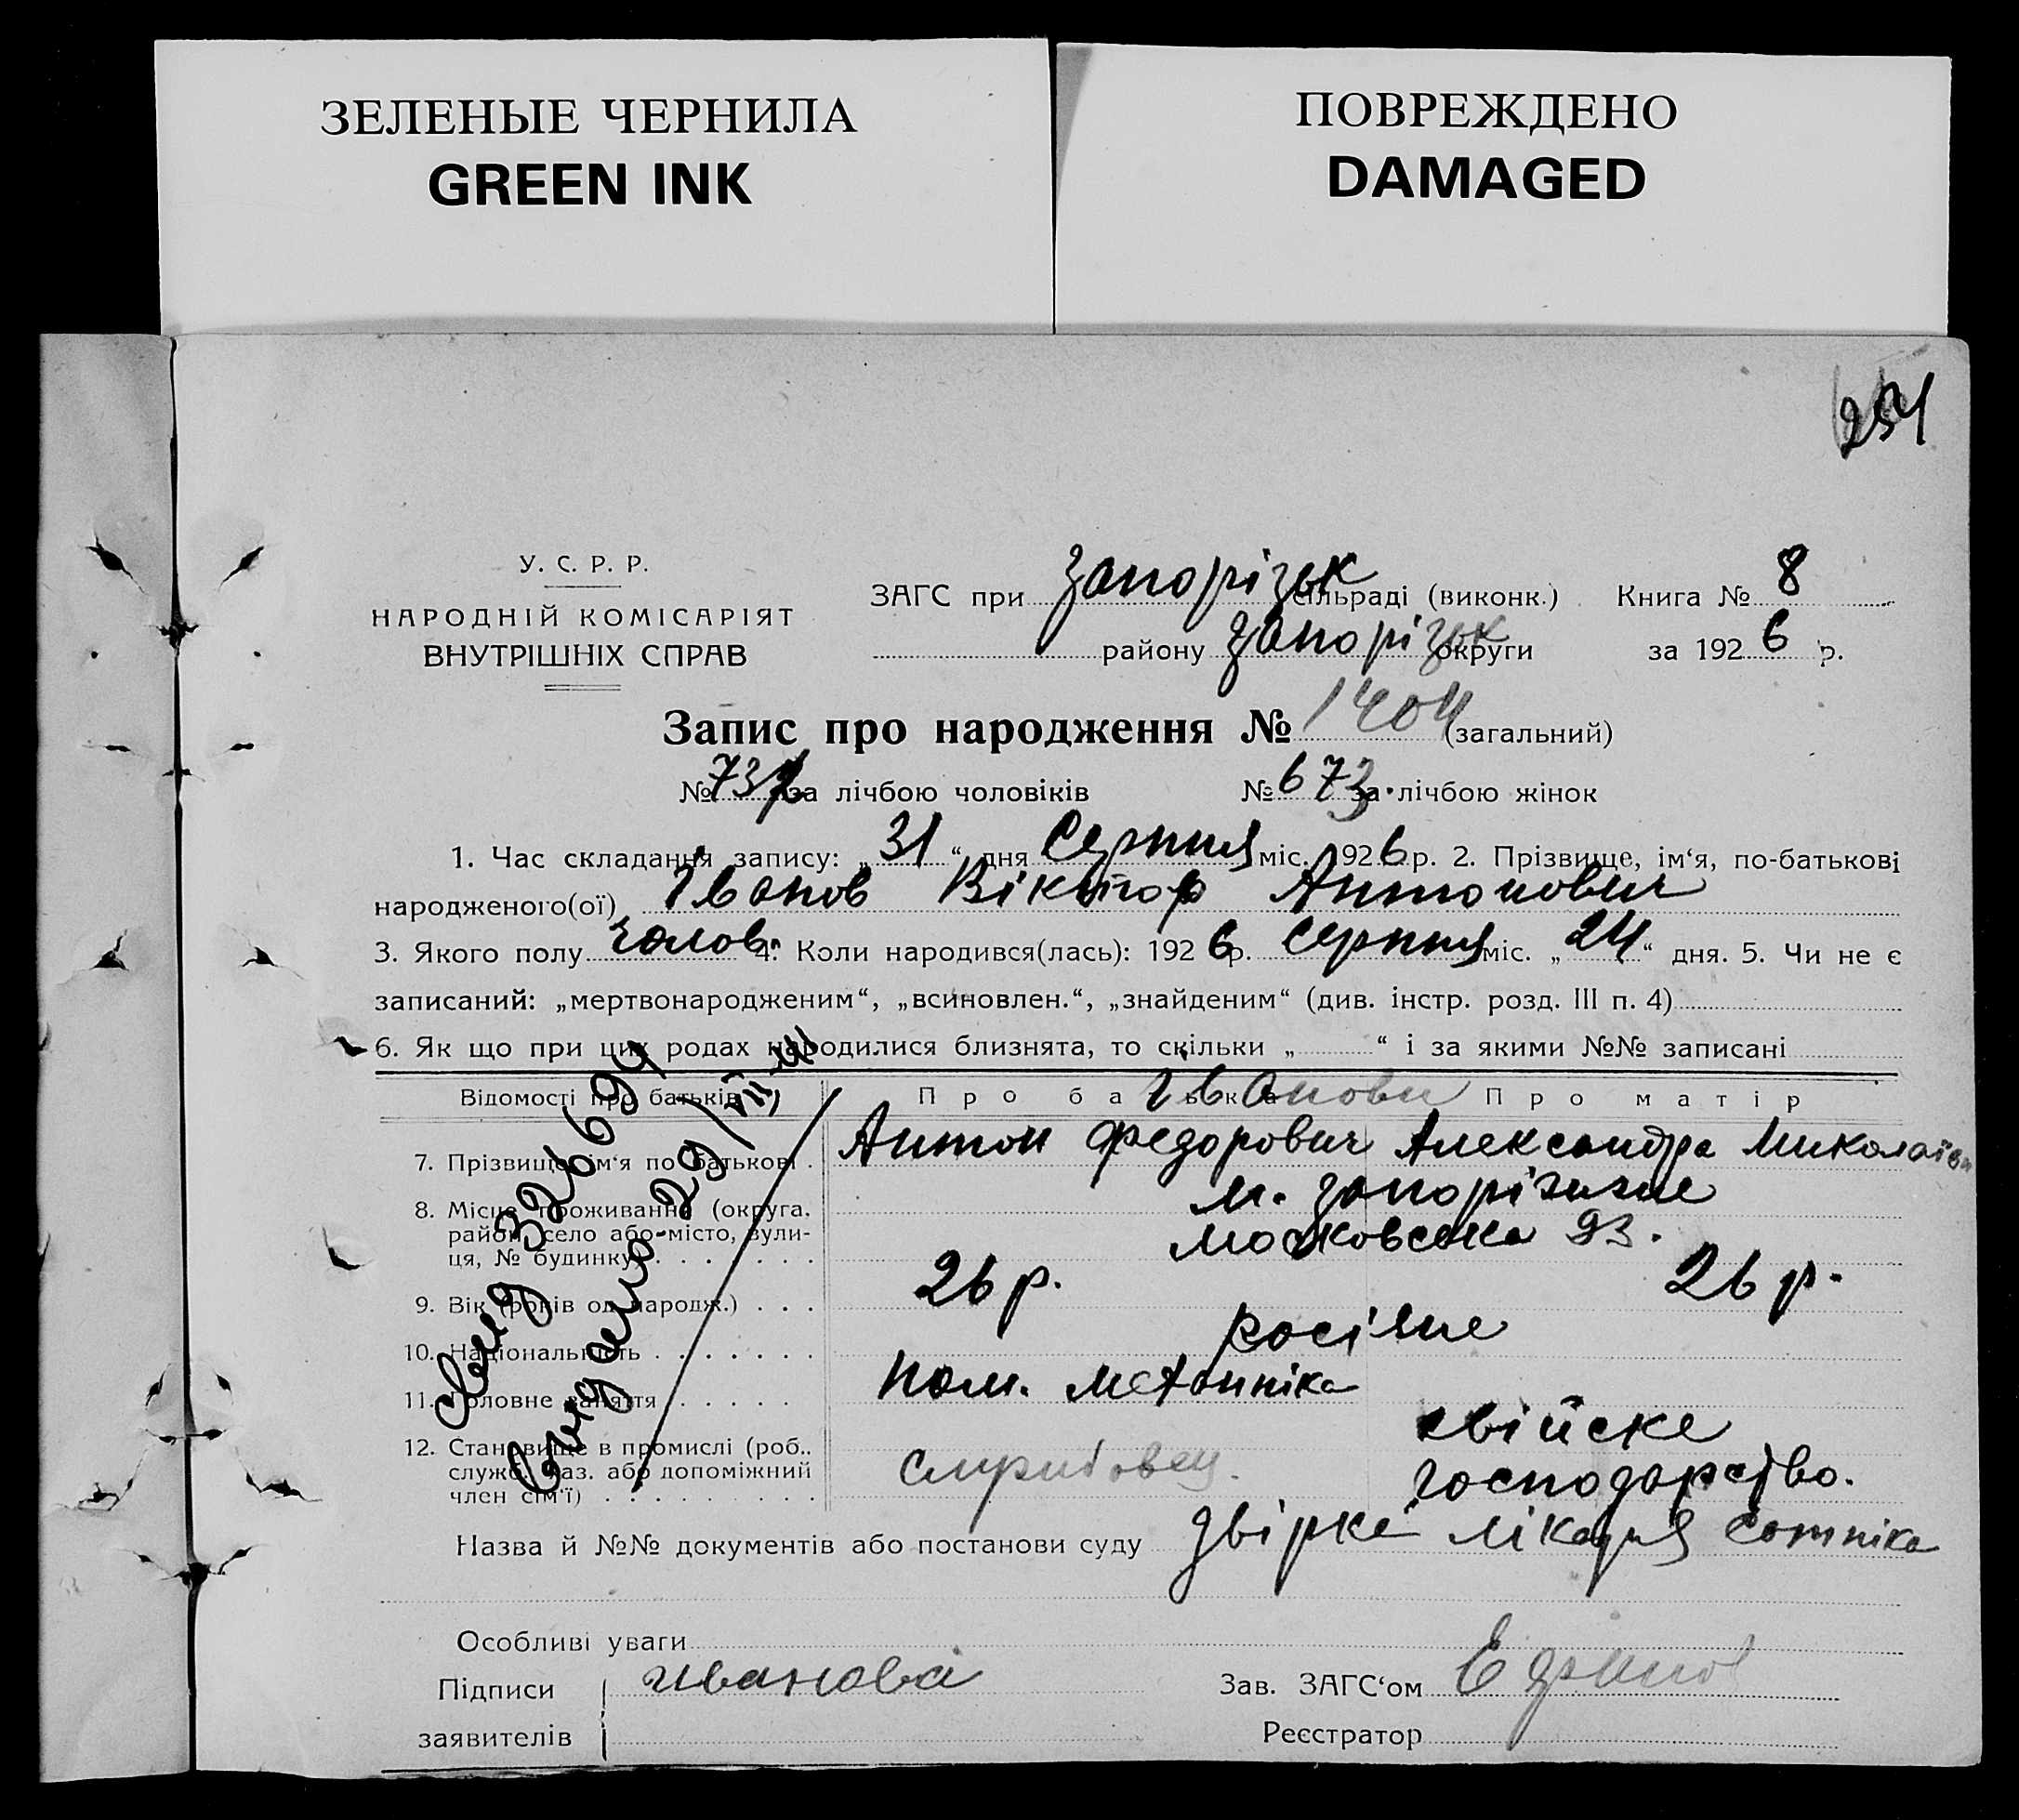 ЗЕЛЕНЫЕ ЧЕРНИЛА
GREEN INK
ПОВРЕЖДЕНО
DAMAGED
254
У. С. Р. Р.
НАРОДНІЙ КОМІСАРІЯТ
ВНУТРІШНІХ СПРАВ
ЗАГС при Запорізьк сільраді (виконк.) Книга № 8
району Запорізьк округи за 1926 р.
Запис про народження № 1404 (загальний)
№ 732 за лічбою чоловіків № 673 за лічбою жінок
1. Час складання запису: „31“ дня Серпня міс. 1926 р. 2. Прізвище, ім‘я, по-батькові
народженого(ої) Іванов Віктор Антонович
3. Якого полу чолов. 4. Коли народився(лась): 1926 р. Серпня міс. „24“ дня. 5. Чи не є
записаний: „мертвонародженим“, „всиновлен.“, „знайденим“ (див. інстр. розд. III п. 4)
6. Як що при цих родах народилися близнята, то скільки „ “ і за якими №№ записані
Відомості про батьків Про батька Іванови Про матір
7. Прізвище ім‘я по батькові . Антон Федорович Александра Миколаївн
8. Місце проживання (округа, м. Запоріжжє
район, село або місто, вули-
ця, № будинку) Московська 93.
9. Вік (років од народж.) . . . 26 р. 26 р.
10. Національність . . . . . . . росіяне
11. Головне заняття . . . . . . пом. механніка
хвійске
12. Становище в промислі (роб.,
служб., хаз. або допоміжний
член сім‘ї) . . . . . . . . . господарство.
Свид 326694
Видано 29/VII-41
Назва й №№ документів або постанови суду Двірка лікаря Сотніка
Особливі уваги
Підписи Иванова Зав. ЗАГС‘ом
заявителів Реєстратор